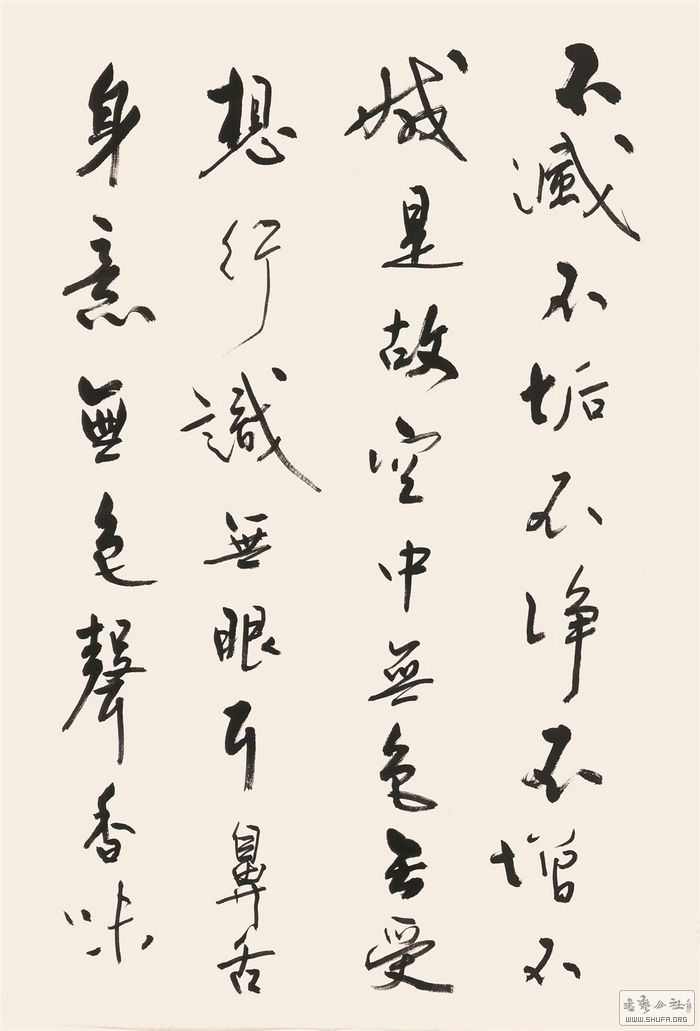 不滅不垢不淨不增不
減是故空中無色無受
想行識無眼耳鼻舌
身意無色聲香味
書藝公社
WWW.SHUFA.ORG